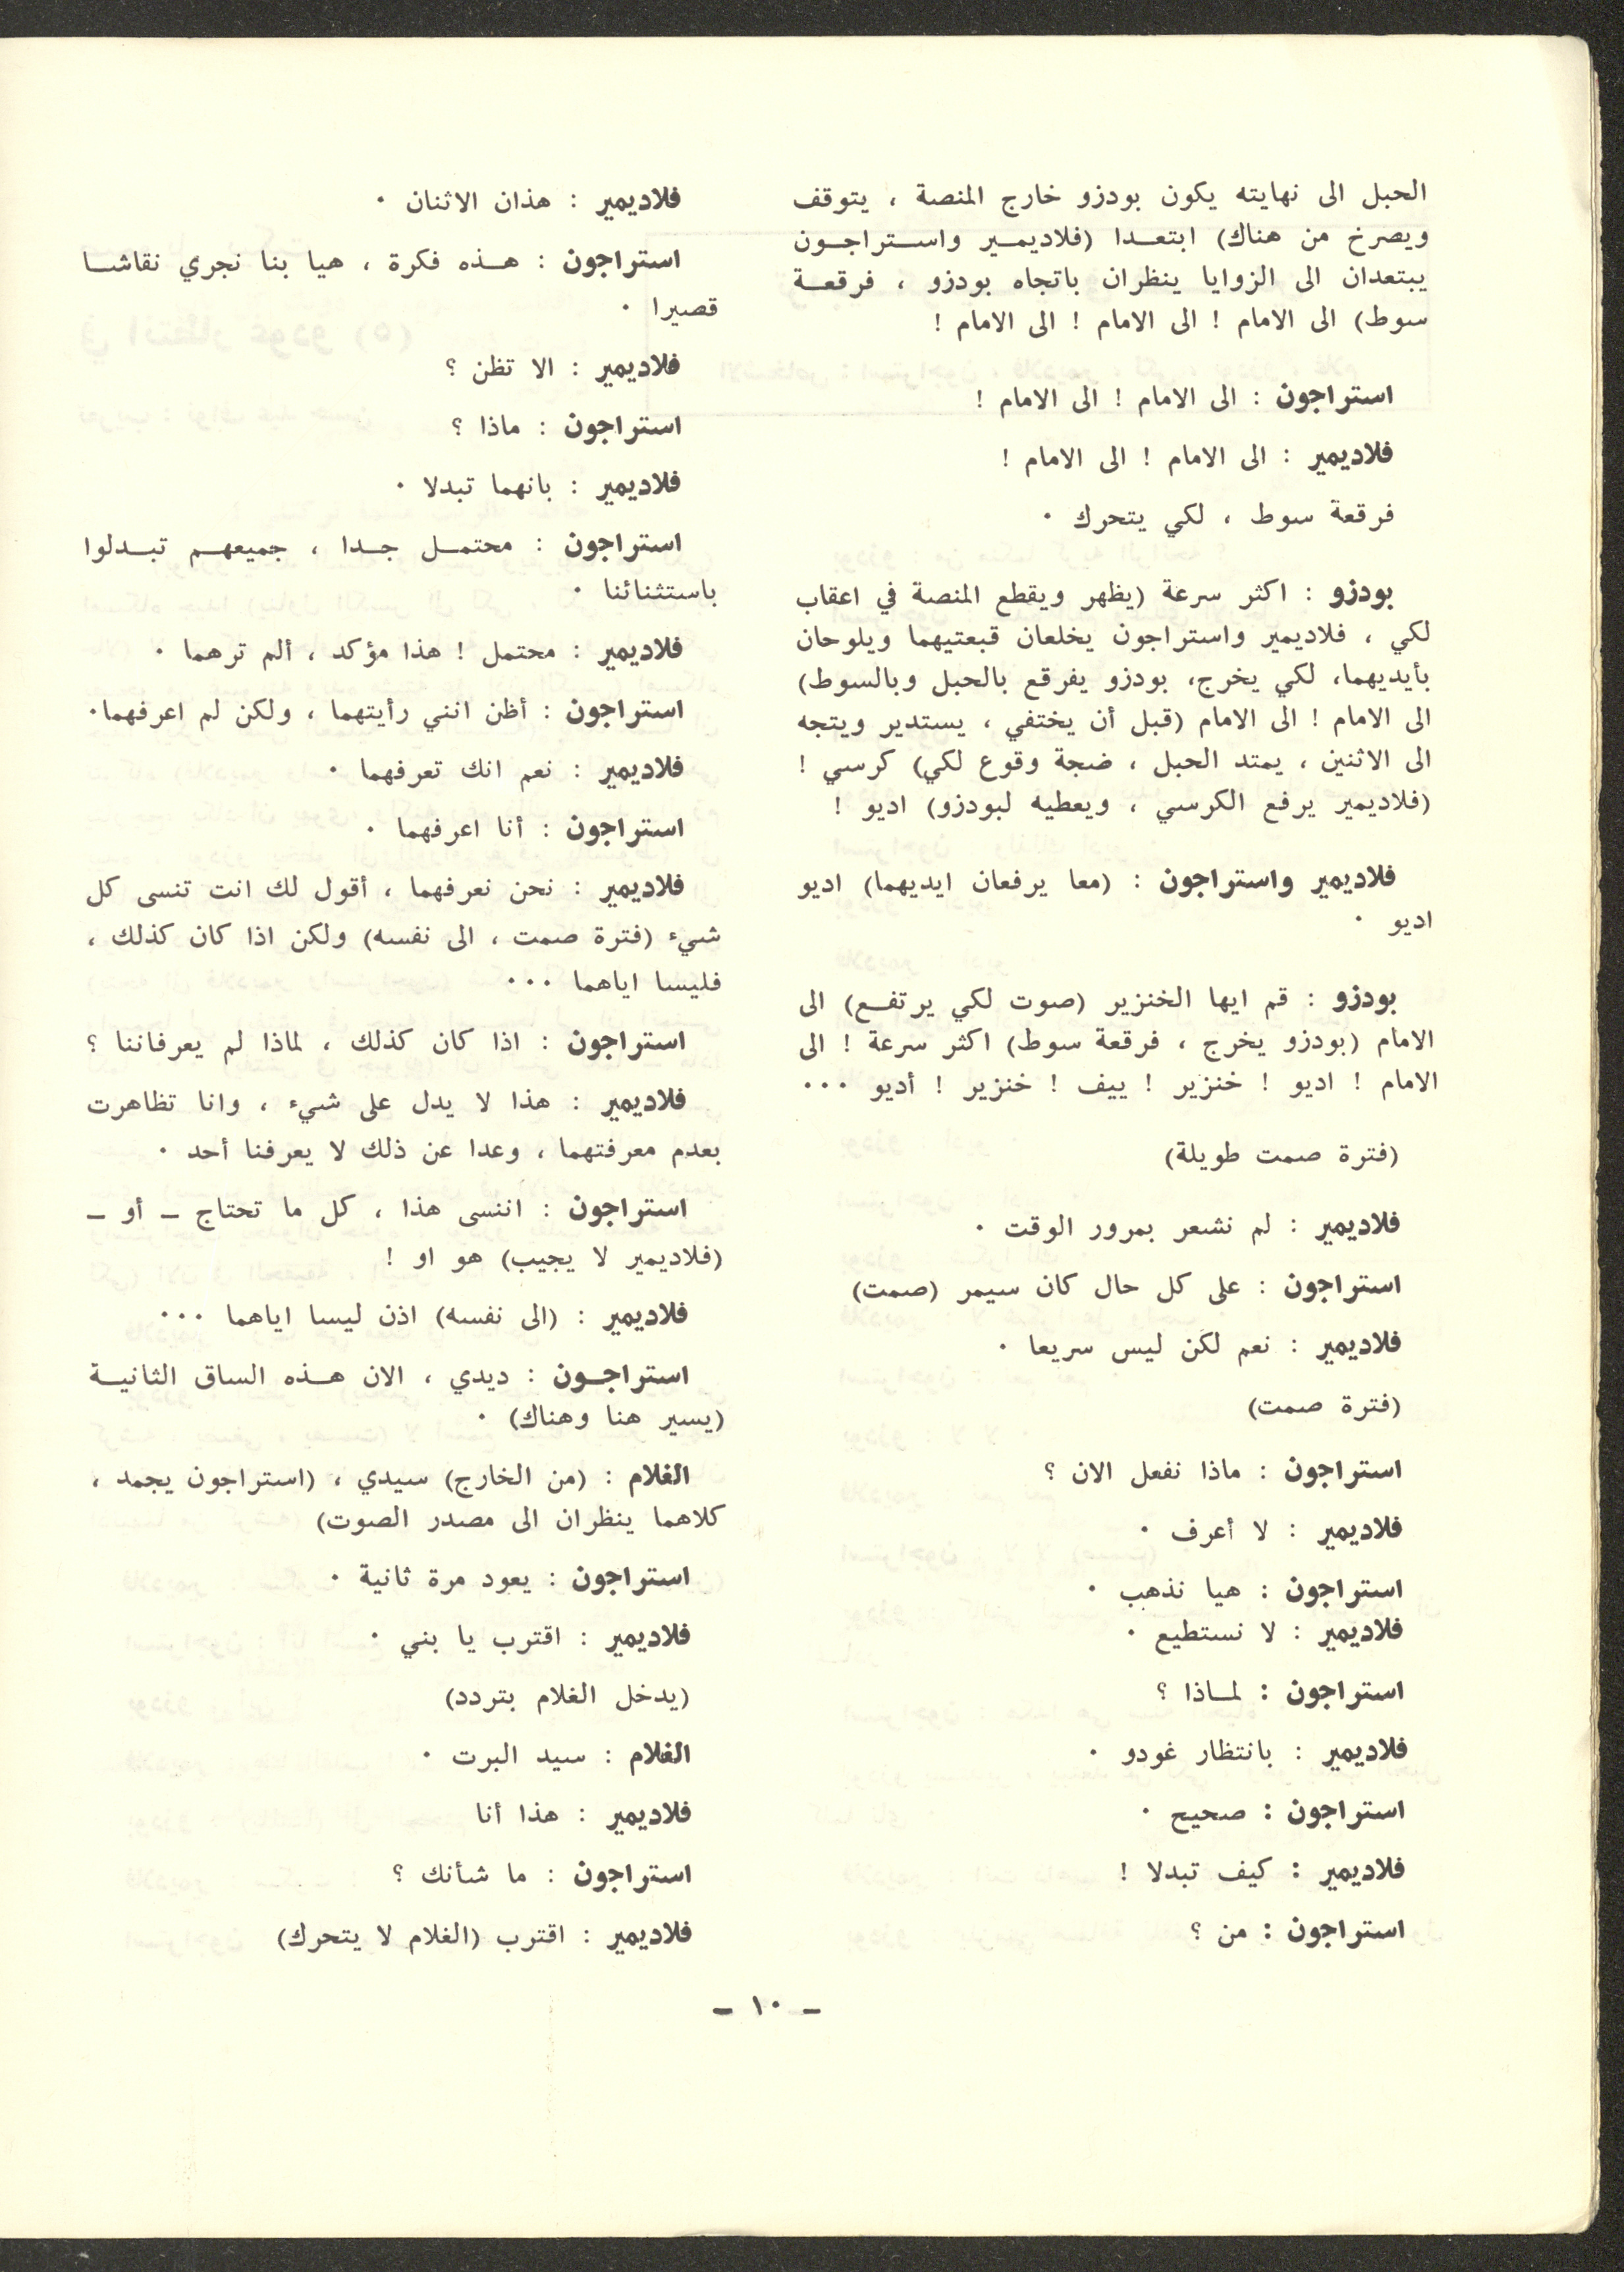 الحبل الى نهايته يكون بودزو خارج المنصة ، يتوقف
ويصرخ من هناك) ابتعدا (فلاديمير واستراجون
يبتعدان الى الزوايا ينظران باتجاه بودزو ، فرقعة
سوط) الى الامام ! الى الامام ! الى الامام !
استراجون : الى الامام ! الى الامام !
فلاديمير : الى الامام ! الى الامام !
فرقعة سوط ، لكي يتحرك ٠
بودزو : اكثر سرعة (يظهر ويقطع المنصة في اعقاب
لكي ، فلاديمير واستراجون يخلعان قبعتيهما ويلوحان
بأيديهما، لكي يخرج، بودزو يفرقع بالحبل وبالسوط)
الى الامام ! الى الامام (قبل أن يختفي ، يستدير ويتجه
الى الاثنين ، يمتد الحبل ، ضجة وقوع لكي) كرسي !
(فلاديمير يرفع الكرسي ، ويعطيه لبودزو) اديو !
فلاديمير واستراجون : (معا يرفعان ايديهما) اديو
اديو ٠
بودزو : قم ايها الخنزير (صوت لكي يرتفع) الى
الامام (بودزو يخرج ، فرقعة سوط) اكثر سرعة ! الى
الامام ! اديو ! خنزير ! ييف ! خنزير ! أديو ٠٠٠
(فترة صمت طويلة)
فلاديمير : لم نشعر بمرور الوقت ٠
استراجون : على كل حال كان سيمر (صمت)
فلاديمير : نعم لكن ليس سريعا ٠
(فترة صمت)
استراجون : ماذا نفعل الان ؟
فلاديمير : لا أعرف ٠
استراجون : هيا نذهب ٠
فلاديمير : لا نستطيع ٠
استراجون : لماذا ؟
فلاديمير : بانتظار غودو ٠
استراجون : صحيح ٠
فلاديمير : كيف تبدلا !
استراجون : من ؟
فلاديمير : هذان الاثنان ٠
استراجون : هذه فكرة ، هيا بنا نجري نقاشا
قصيرا ٠
فلاديمير : الا تظن ؟
استراجون : ماذا ؟
فلاديمير : بانهما تبدلا ٠
استراجون : محتمل جدا ، جميعهم تبدلوا
باستثنائنا ٠
فلاديمير : محتمل ! هذا مؤكد ، ألم ترهما ٠
استراجون : أظن انني رأيتهما ، ولكن لم اعرفهما٠
فلاديمير : نعم انك تعرفهما ٠
استراجون : أنا اعرفهما ٠
فلاديمير : نحن نعرفهما ، أقول لك انت تنسى كل
شيء (فترة صمت ، الى نفسه) ولكن اذا كان كذلك ،
فليسا اياهما ٠٠٠
استراجون : اذا كان كذلك ، لماذا لم يعرفاننا ؟
فلاديمير : هذا لا يدل على شيء ، وانا تظاهرت
بعدم معرفتهما ، وعدا عن ذلك لا يعرفنا أحد ٠
استراجون : اننسى هذا ، كل ما تحتاج ـ أو ـ
(فلاديمير لا يجيب) هو او !
فلاديمير : (الى نفسه) اذن ليسا اياهما ٠٠٠
استراجون : ديدي ، الان هذه الساق الثانية
(يسير هنا وهناك) ٠
الغلام : (من الخارج) سيدي ، (استراجون يجمد ،
كلاهما ينظران الى مصدر الصوت)
استراجون : يعود مرة ثانية ٠
فلاديمير : اقترب يا بني ٠
(يدخل الغلام بتردد)
الغلام : سيد البرت ٠
فلاديمير : هذا أنا
استراجون : ما شأنك ؟
فلاديمير : اقترب (الغلام لا يتحرك)
ـ ١٠ ـ